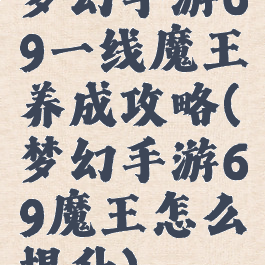 梦幻手游6
9一线魔王
养成攻略(
梦幻手游6
9魔王怎么
提升)